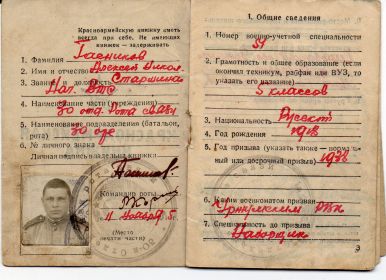 Красноармейскую книжку иметь
всегда при себе. Не имеющих
книжек — задерживать
1. Фамилия Пасников
2. Имя и отчество Алексей Никол
3. Звание и должность Старшина
Нач.
4. Наименование части (учреждения)
30 отд. Рота
5. Наименование подразделения (батальон,
рота) 30
6. № личного знака
Личная подпись владельца книжки
Командир роты
11 Ноября 5 г.
(Место
печати части)
I. Общие сведения
1. Номер военно-учетной специальности
2. Грамотность и общее образование (если
окончил техникум, рабфак или ВУЗ, то
указать его название)
5 классов
3. Национальность Русский
4. Год рождения
5. Год призыва (указать также — нормаль-
ный или досрочный призыв) 1938
6. Каким военкоматом призван
РВК
7. Специальность до призыва